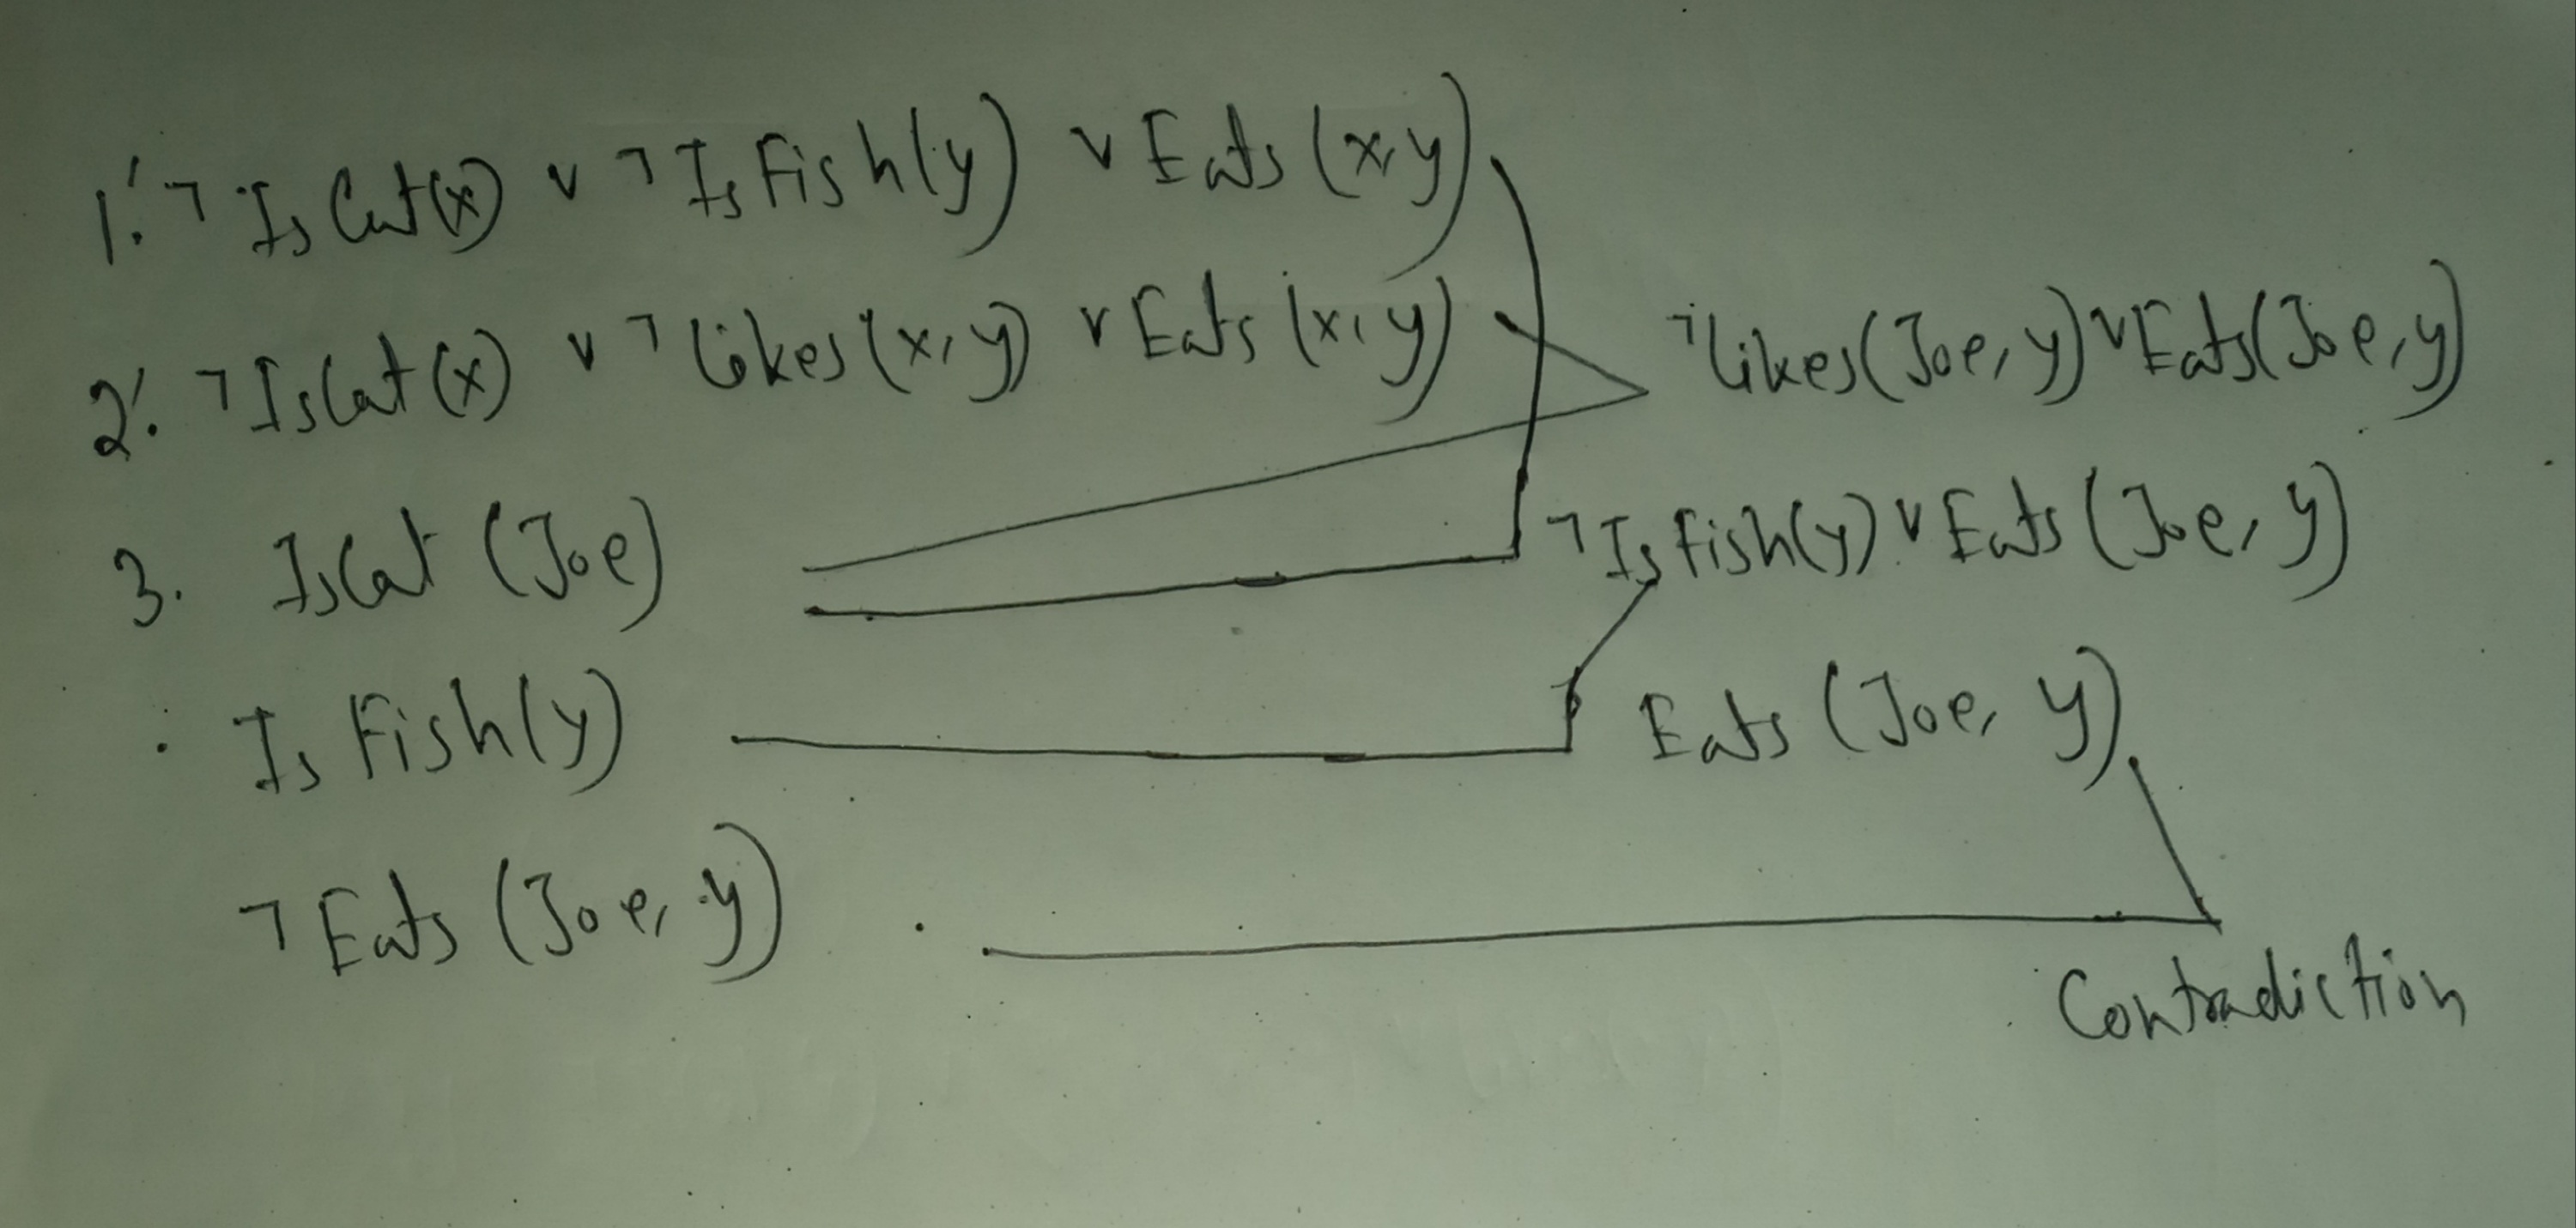 1'. ¬IsCat(x) ∨ ¬IsFish(y) ∨ Eats(x,y)
2'. ¬IsCat(x) ∨ ¬likes(x,y) ∨ Eats(x,y)
¬likes(Joe,y) ∨ Eats(Joe,y)
3. IsCat(Joe)
¬IsFish(y) ∨ Eats(Joe,y)
IsFish(y)
Eats(Joe,y)
¬Eats(Joe,y)
Contradiction